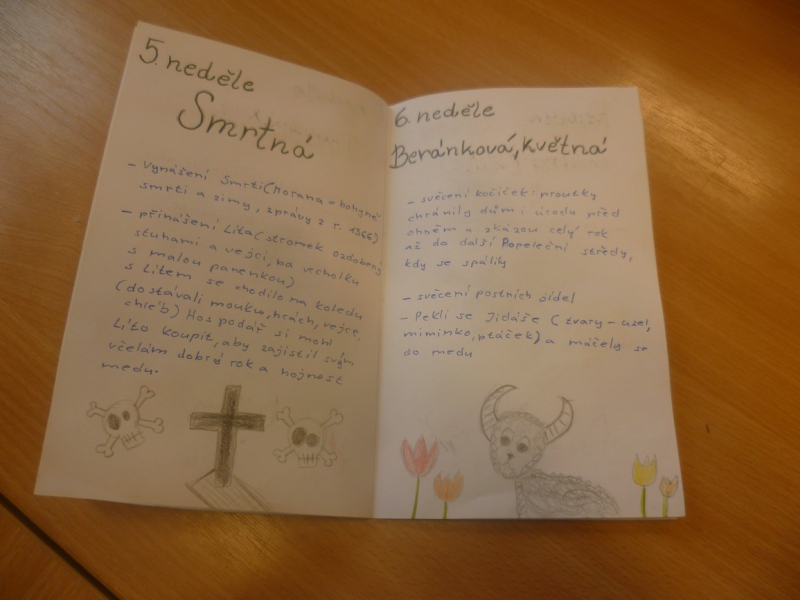 5. neděle
Smrtná
- Vynášení Smrti (Morana = bohyně
smrti a zimy, zprávy z r. 1366)
- přinášení Líta (stromek ozdobený
stuhami a vejci, na vrcholku
s malou panenkou)
s Lítem se chodilo na koledu
(dostávali mouku, hrách, vejce,
chléb) Hospodář si mohl
Líto koupit, aby zajistil svým
včelám dobrý rok a hojnost
medu.
6. neděle
Beránková, květná
- svěcení kočiček: proutky
chránily dům i úrodu před
ohněm a zkázou celý rok
až do další Popeleční středy,
kdy se spálily
- svěcení postních jídel
- Pekli se Jidáše (tvary - uzel,
miminko, ptáček) a máčely se
do medu